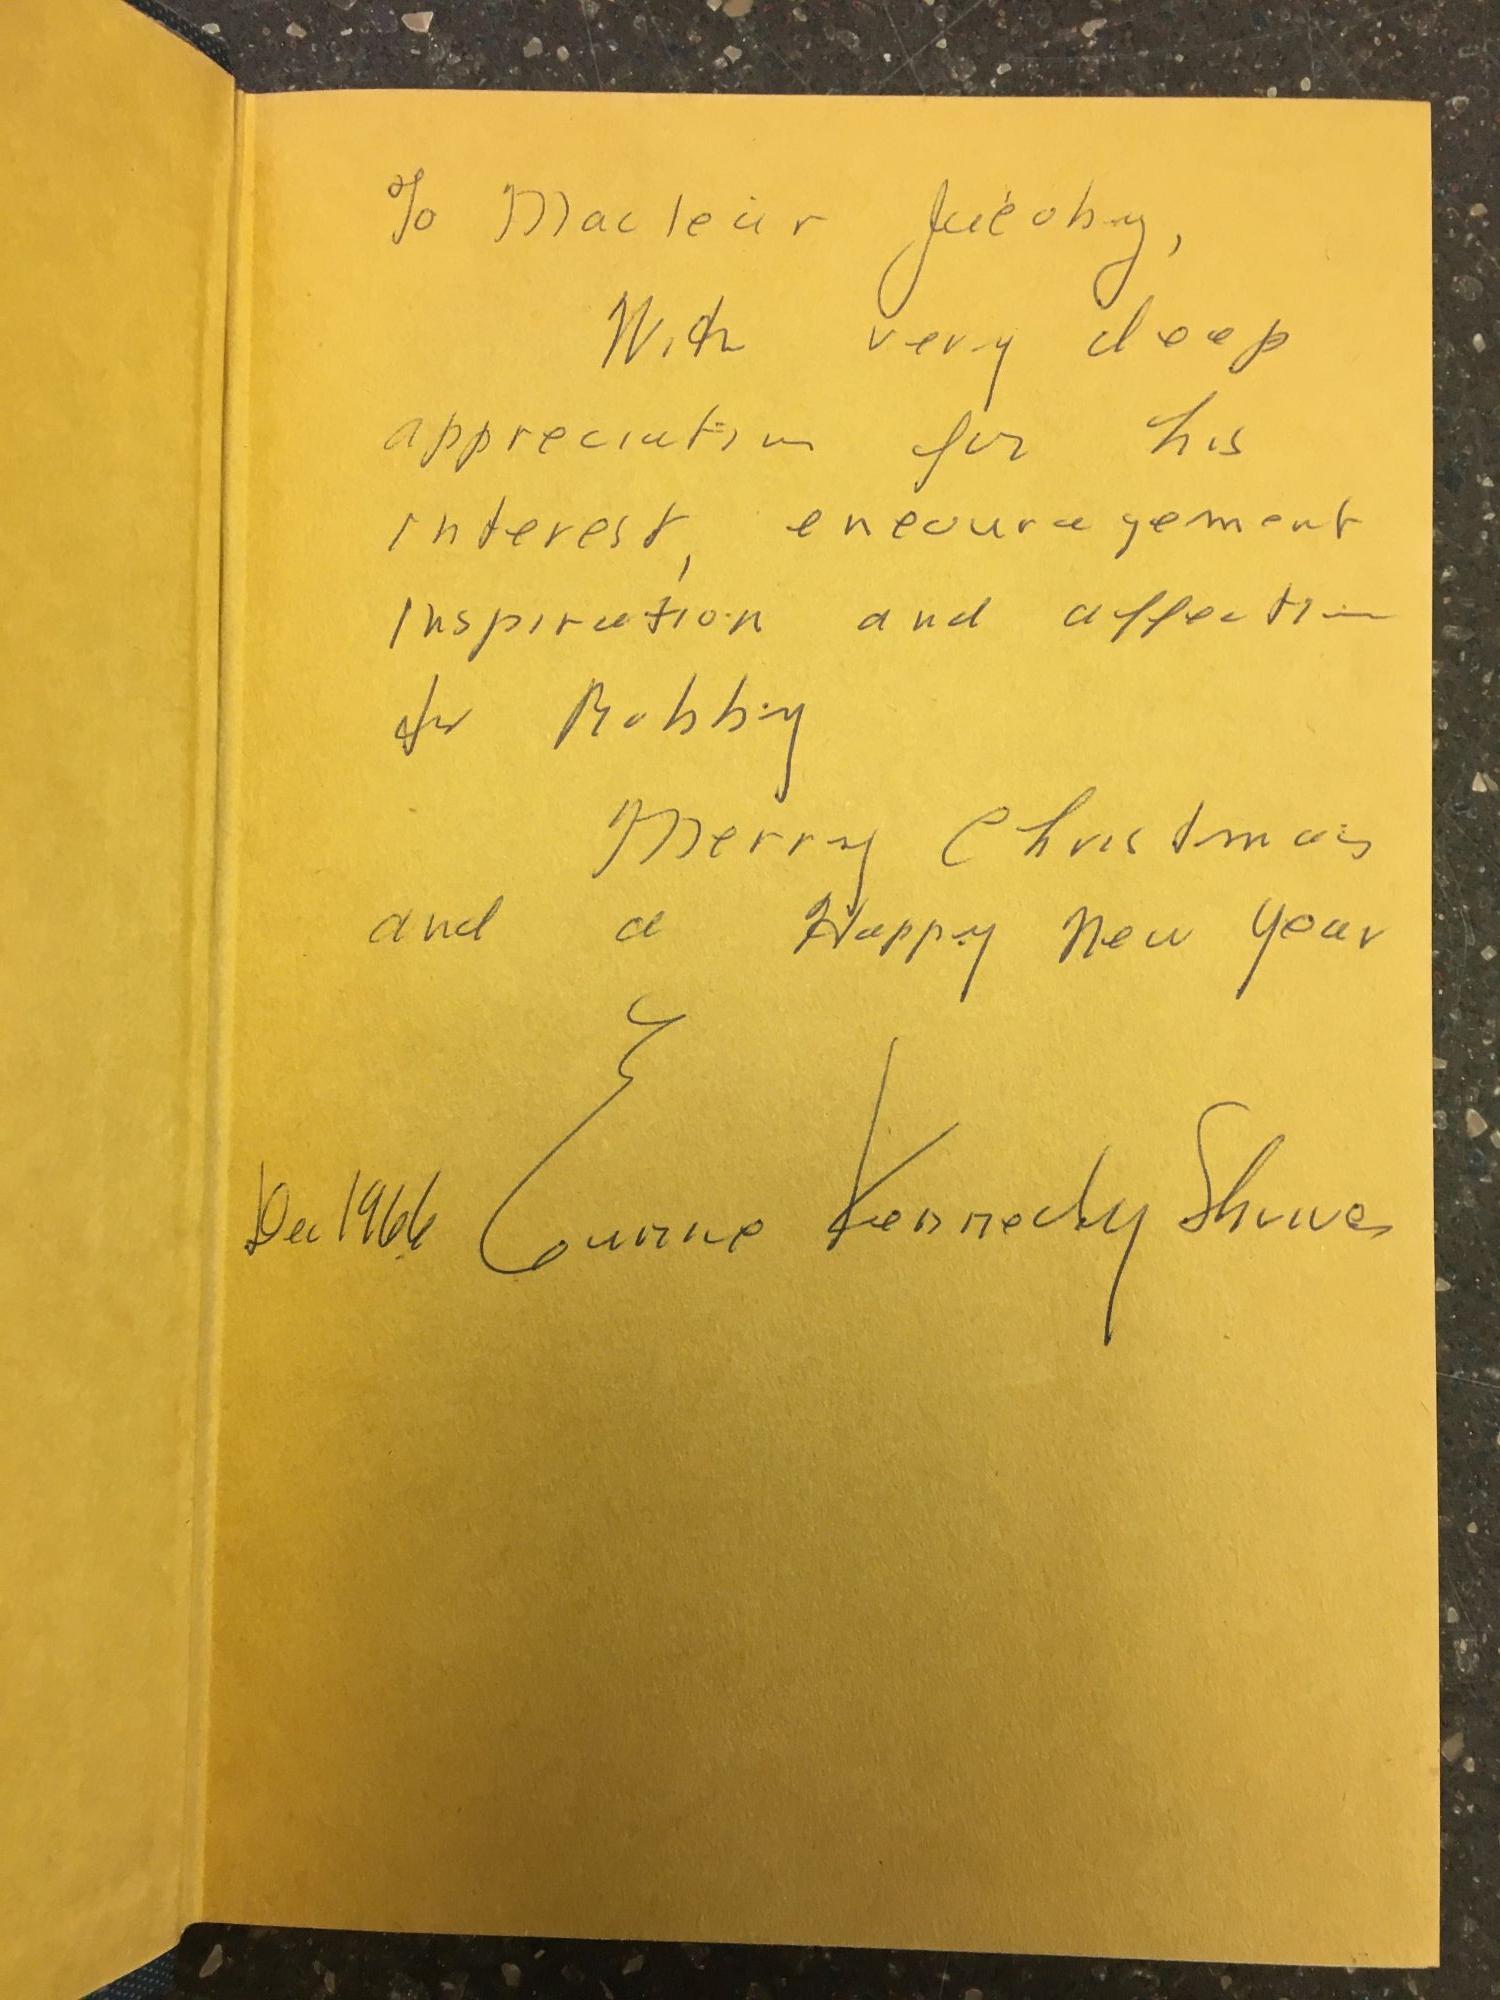 To Maclear Jacoby,
With very deep
appreciation for his
interest, encouragement
inspiration and affection
for Bobby
Merry Christmas
and a Happy New Year
Dec 1966 Eunice Kennedy Shriver